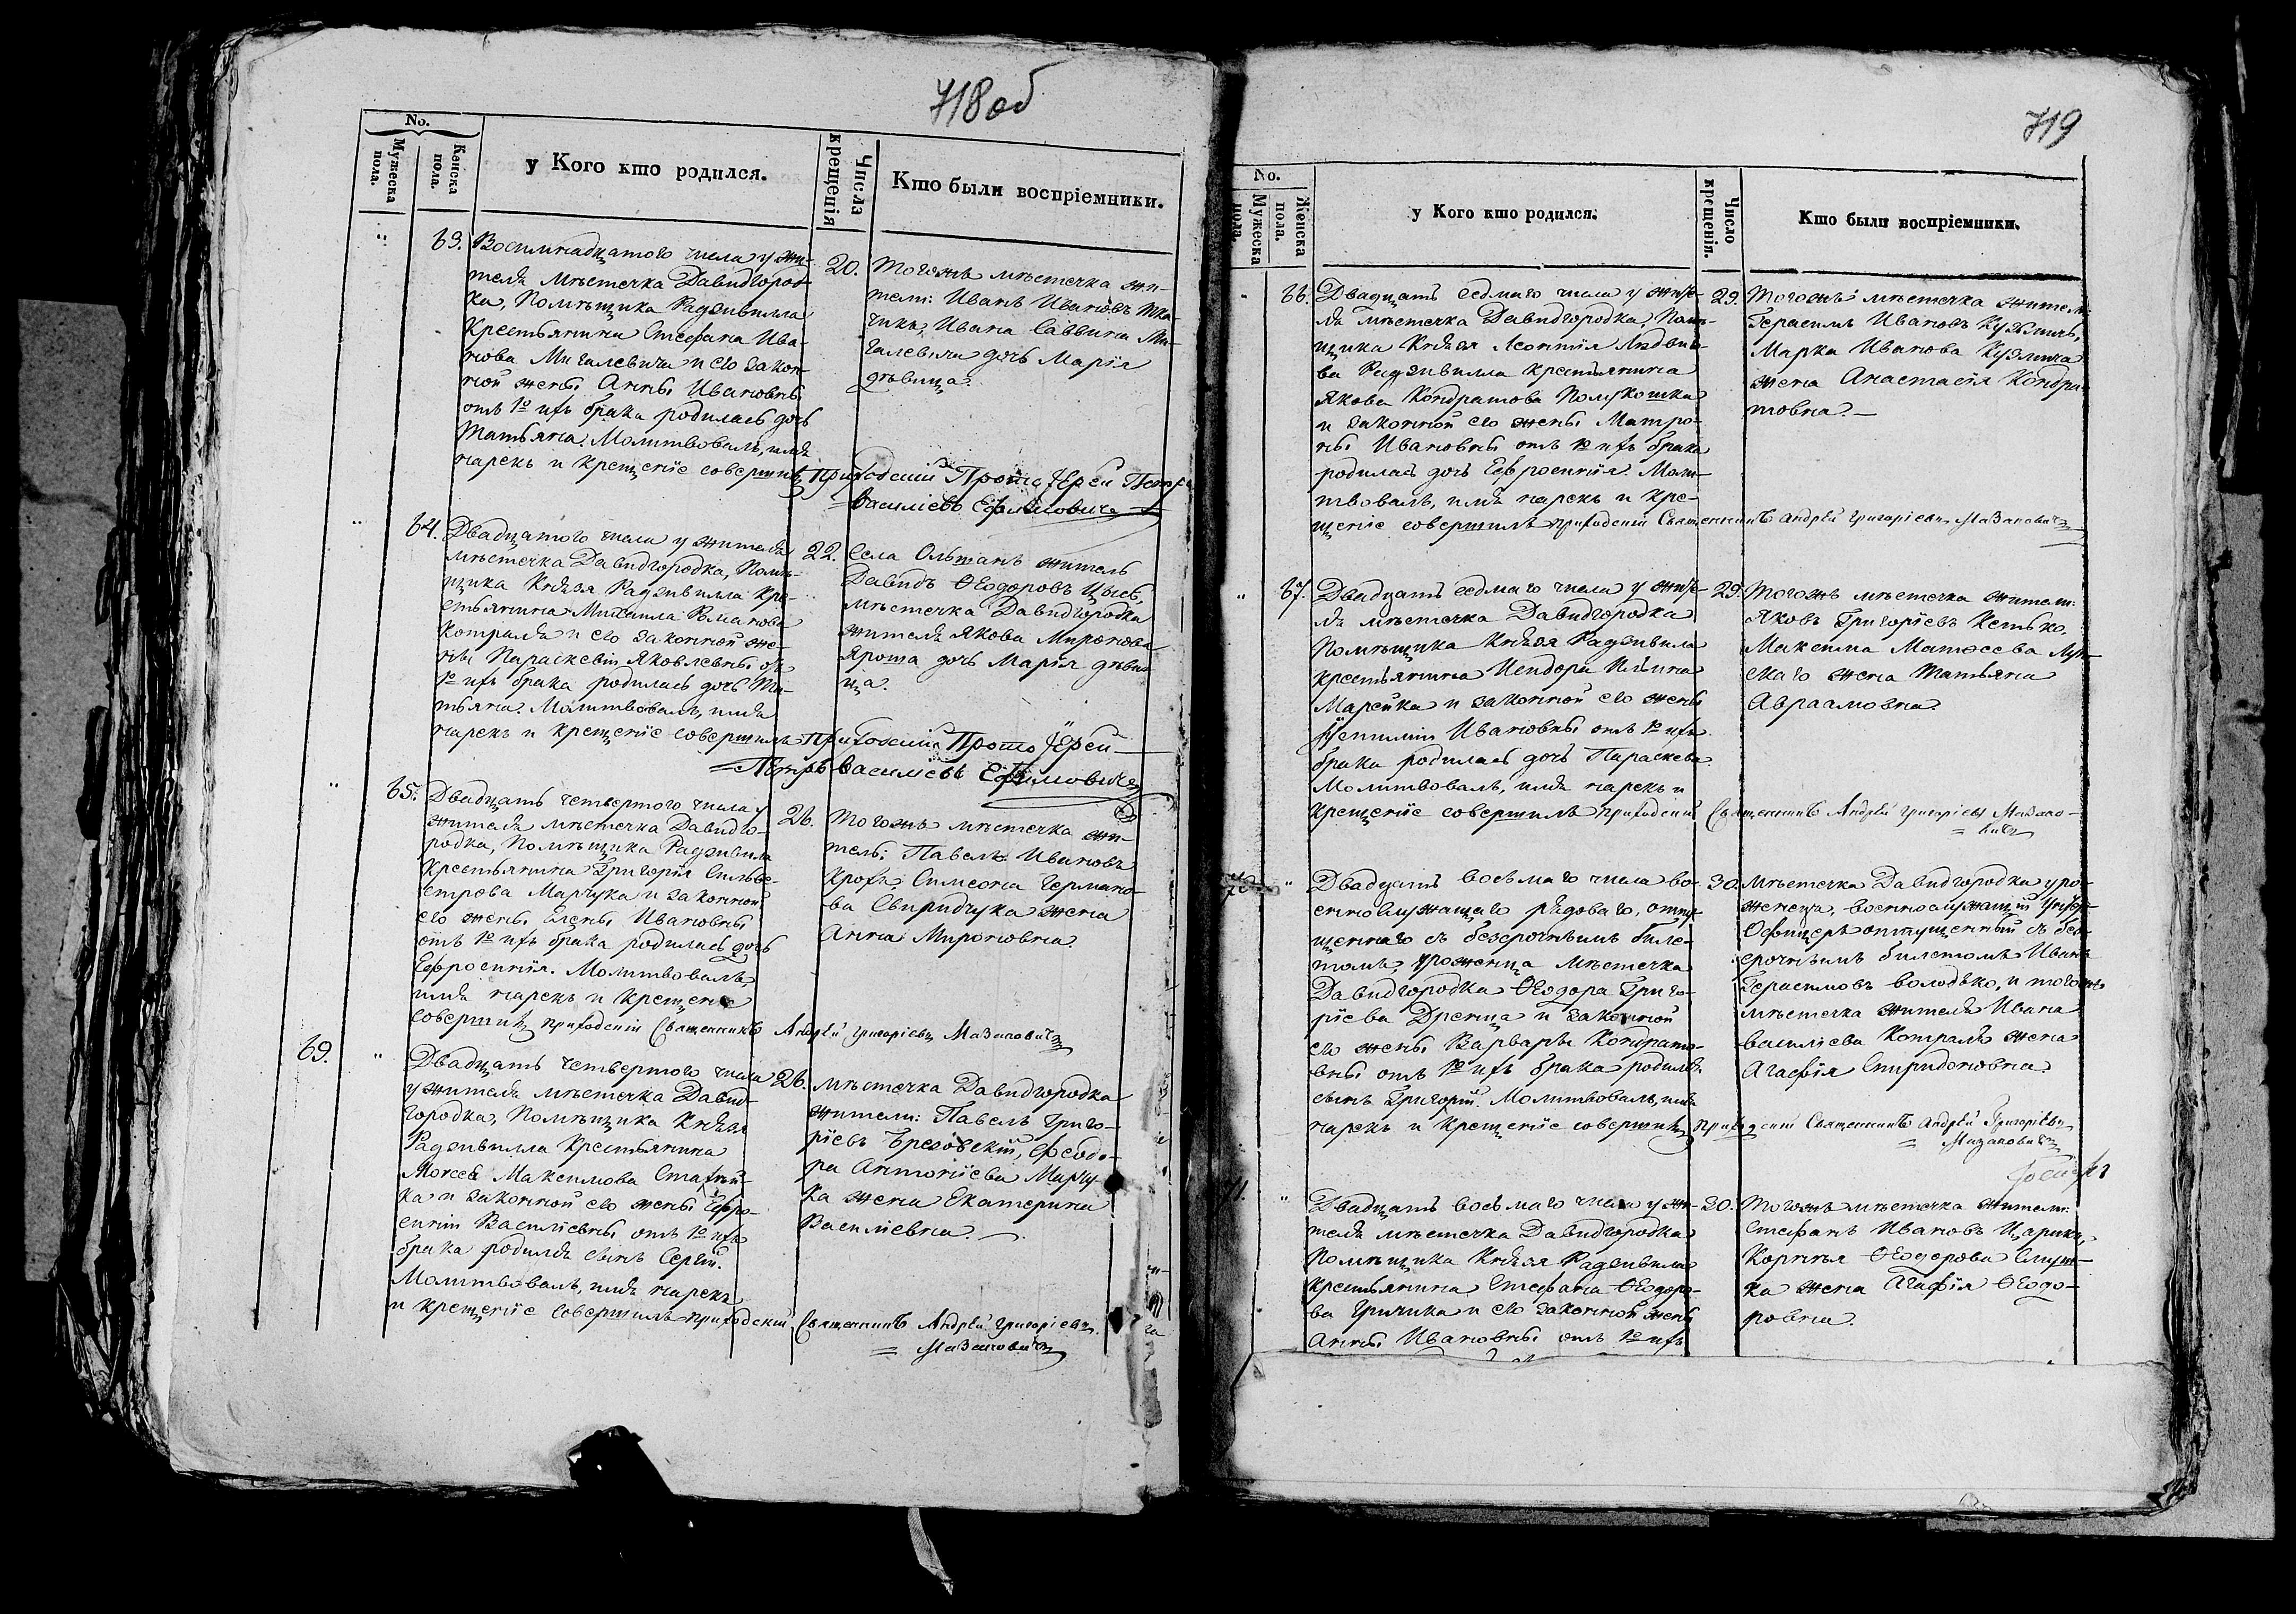 718 об
No.
Мужеска пола.
Женска пола.
у Кого кто родился.
Числа крещенія
Кто были воспріемники.
63. Восемнадцатого числа у жи-
теля мѣстечка Давидгород-
ка, Помѣщика Радзивилла
крестьянина Стефана Ива-
нова Мигалевича и его закон-
ной жены Анны Ивановны
отъ 1го ихъ брака родилась дочь
Татьяна. Молитвовалъ, имя
нарекъ и крещеніе совершилъ Приходскій Прото Іерей Петръ
Василіевъ Ефимовичъ
20. Тогожъ мѣстечка жи-
тели: Иванъ Ивановъ
Ивана Саввина Ми-
галевича дочь Марія
дѣвица.
64. Двадцатого числа у жителя
мѣстечка Давидгородка, Помѣ-
щика Князя Радзивилла кре-
стьянина Михаила Романова
Котраля и его законной же-
ны Параскевіи Яковлевны отъ
1го ихъ брака родилась дочь Та-
тьяна. Молитвовалъ, имя
нарекъ и крещеніе совершилъ Приходскій Прото Іерей
Петръ Василіевъ Ефимовичъ
22. Села Ольшанъ житель
Давидъ Ѳеодоровъ Цыбъ,
мѣстечка Давидгородка
жителя Якова Миронова
Яроша дочь Марія дѣви-
ца.
65. Двадцать четвертого числа у
жителя мѣстечка Давидго-
родка, Помѣщика Радзивила
Крестьянина Григорія Сильве-
строва Марчука и законной
его жены Елены Ивановны
отъ 1го ихъ брака родилась дочь
Ефросинія. Молитвовалъ,
имя нарекъ и крещеніе
совершилъ приходскій Священникъ Андрей Григоріевъ Мазановичъ
26. Тогожъ мѣстечка жи-
тель: Павелъ Ивановъ
Крохъ, Симеона Германо-
ва Свиридчука жена
Анна Мироновна.
69. Двадцать четвертого числа
у жителя мѣстечка Давид-
городка, Помѣщика Князя
Радзивилла Крестьянина
Моисея Максимова
ка и законной его жены Ефро-
синіи Василіевны отъ 1го ихъ
брака родился сынъ Сергій.
Молитвовалъ, имя нарекъ
и крещеніе совершилъ приходскій Священникъ Андрей Григоріевъ
Мазановичъ
26. мѣстечка Давидгородка
жители: Павелъ Григо-
ріевъ Брезовскій, Ѳеодо-
ра Антоніева Марчу-
ка жена Екатерина
Василіевна.
719
No.
Мужеска пола.
Женска пола.
у Кого кто родился.
Число крещенія.
Кто были воспріемники.
66. Двадцать седмаго числа у жите-
ля мѣстечка Давидгородка, Помѣ-
щика Князя Леонтія Людвиго-
ва Радзивилла крестьянина
Якова Кондратова Полукошка
и законной его жены Матро-
ны Ивановны отъ 1го ихъ брака
родилась дочь Ефросинія. Моли-
твовалъ, имя нарекъ и кре-
щеніе совершилъ приходскій Священникъ Андрей Григоріевъ Мазановичъ
29. Тогожъ мѣстечка жители
Герасимъ Ивановъ Кузмичъ,
Марка Иванова Кузмича
жена Анастасія Кондра-
товна.
67. Двадцать седмаго числа у жите-
ля мѣстечка Давидгородка
Помѣщика Князя Радзивила
крестьянина Исидора Ильина
Марейка и законной его жены
Іустиніи Ивановны отъ 1го ихъ
брака родилась дочь Параскева
Молитвовалъ, имя нарекъ и
крещеніе совершилъ приходскій Священникъ Андрей Григоріевъ Мазано-
вичъ
29. Тогожъ мѣстечка жители:
Яковъ Григоріевъ Кетько,
Максима Матѳеева
скаго жена Татьяна
Авраамовна.
70. Двадцать восьмаго числа во-
еннослужащаго рядоваго, отпу-
щеннаго съ безсрочнымъ биле-
томъ, уроженца мѣстечка
Давидгородка Ѳеодора Григо-
ріева Дренца и законной
его жены Варвары Кондрато-
вны отъ 1го ихъ брака родился
сынъ Григорій. Молитвовалъ, имя
нарекъ и крещеніе совершилъ приходскій Священникъ Андрей Григоріевъ
Мазановичъ
30. Мѣстечка Давидгородка уро-
женецъ, военнослужащій Унтеръ-
Офицеръ отпущенный съ без-
срочнымъ билетомъ Иванъ
Герасимовъ Володько, и тогожъ
мѣстечка жителя Ивана
Василіева Котраля жена
Агафія Спиридоновна.
Двадцать восьмаго числа у жи-
теля мѣстечка Давидгородка
Помѣщика Князя Радзивила
крестьянина Стефана Ѳеодоро-
ва Гричика и его законной жены
Анны Ивановны отъ 1го ихъ
30. Тогожъ мѣстечка жители:
Стефанъ Ивановъ Царикъ,
Корнилія Ѳеодорова
ка жена Агафія Ѳеодо-
ровна.